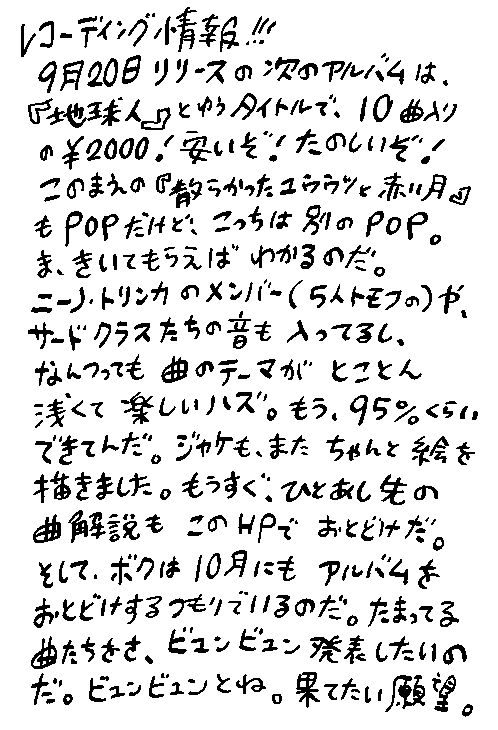 レコーディング情報!!!
9月20日リリースの次のアルバムは、
『地球人』とゆうタイトルで、10曲入り
の¥2000!安いぞ!たのしいぞ!
このまえの『散らかったユウウツと赤い月』
もPOPだけど、こっちは別のPOP。
ま、きいてもらえばわかるのだ。
ニーノ・トリンカのメンバー(5人トモフの)や、
サードクラスたちの音も入ってるし、
なんつっても曲のテーマがとことん
浅くて楽しいハズ。もう、95%くらい
できてんだ。ジャケも、またちゃんと絵を
描きました。もうすぐ、ひとあし先の
曲解説もこのHPでおとどけだ。
そして、ボクは10月にもアルバムを
おとどけするつもりでいるのだ。たまってる
曲たちをさ、ビュンビュン発表したいの
だ。ビュンビュンとね。果てたい願望。